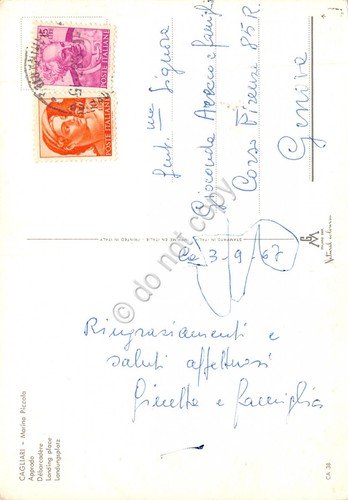 CAGLIARI - Marina Piccola
Approdo
Débarcadère
Landing place
Landungsplatz
Ca 3-9-67
Ringraziamenti e
saluti affettuosi
Ginetta e famiglia
STAMPATO IN ITALIA - PRINTED IN ITALY
POSTE ITALIANE
15
POSTE ITALIANE
Gent.ma Signora
Gioconda e famiglia
Corso Firenze 85 R.
Genova
CA - 38
do not copy